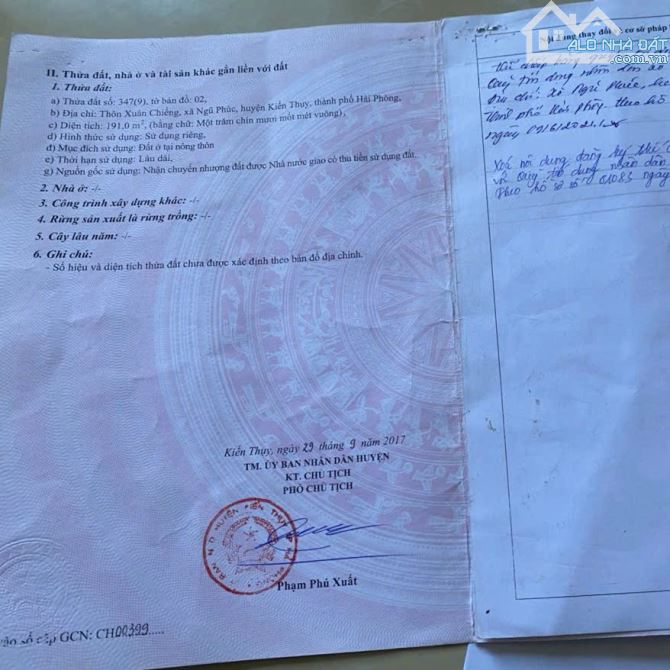 II. Thửa đất, nhà ở và tài sản khác gắn liền với đất
1. Thửa đất:
a) Thửa đất số: 347(9), tờ bản đồ: 02,
b) Địa chỉ: Thôn Xuân Chiếng, xã Ngũ Phúc, huyện Kiến Thụy, thành phố Hải Phòng,
c) Diện tích: 191,0 m², (bằng chữ: Một trăm chín mươi mốt mét vuông),
d) Hình thức sử dụng: Sử dụng riêng,
đ) Mục đích sử dụng: Đất ở tại nông thôn
e) Thời hạn sử dụng: Lâu dài,
g) Nguồn gốc sử dụng: Nhận chuyển nhượng đất được Nhà nước giao có thu tiền sử dụng đất.
2. Nhà ở: -/-
3. Công trình xây dựng khác: -/-
4. Rừng sản xuất là rừng trồng: -/-
5. Cây lâu năm: -/-
6. Ghi chú:
- Số hiệu và diện tích thửa đất chưa được xác định theo bản đồ địa chính.
Kiến Thụy, ngày 29 tháng 9 năm 2017
TM. ỦY BAN NHÂN DÂN HUYỆN
KT. CHỦ TỊCH
PHÓ CHỦ TỊCH
Phạm Phú Xuất
số cấp GCN: CH00399.....
Nội dung thay đổi cơ sở pháp
ALO NHÀ ĐẤT
Quỹ tín dụng nhân dân xã
Địa chỉ: xã Ngũ Phúc,
phố Hải Phòng theo hồ
Xoá nội dung đăng ký thế
Quỹ tín dụng nhân dân
theo hồ sơ số 01083 ngày